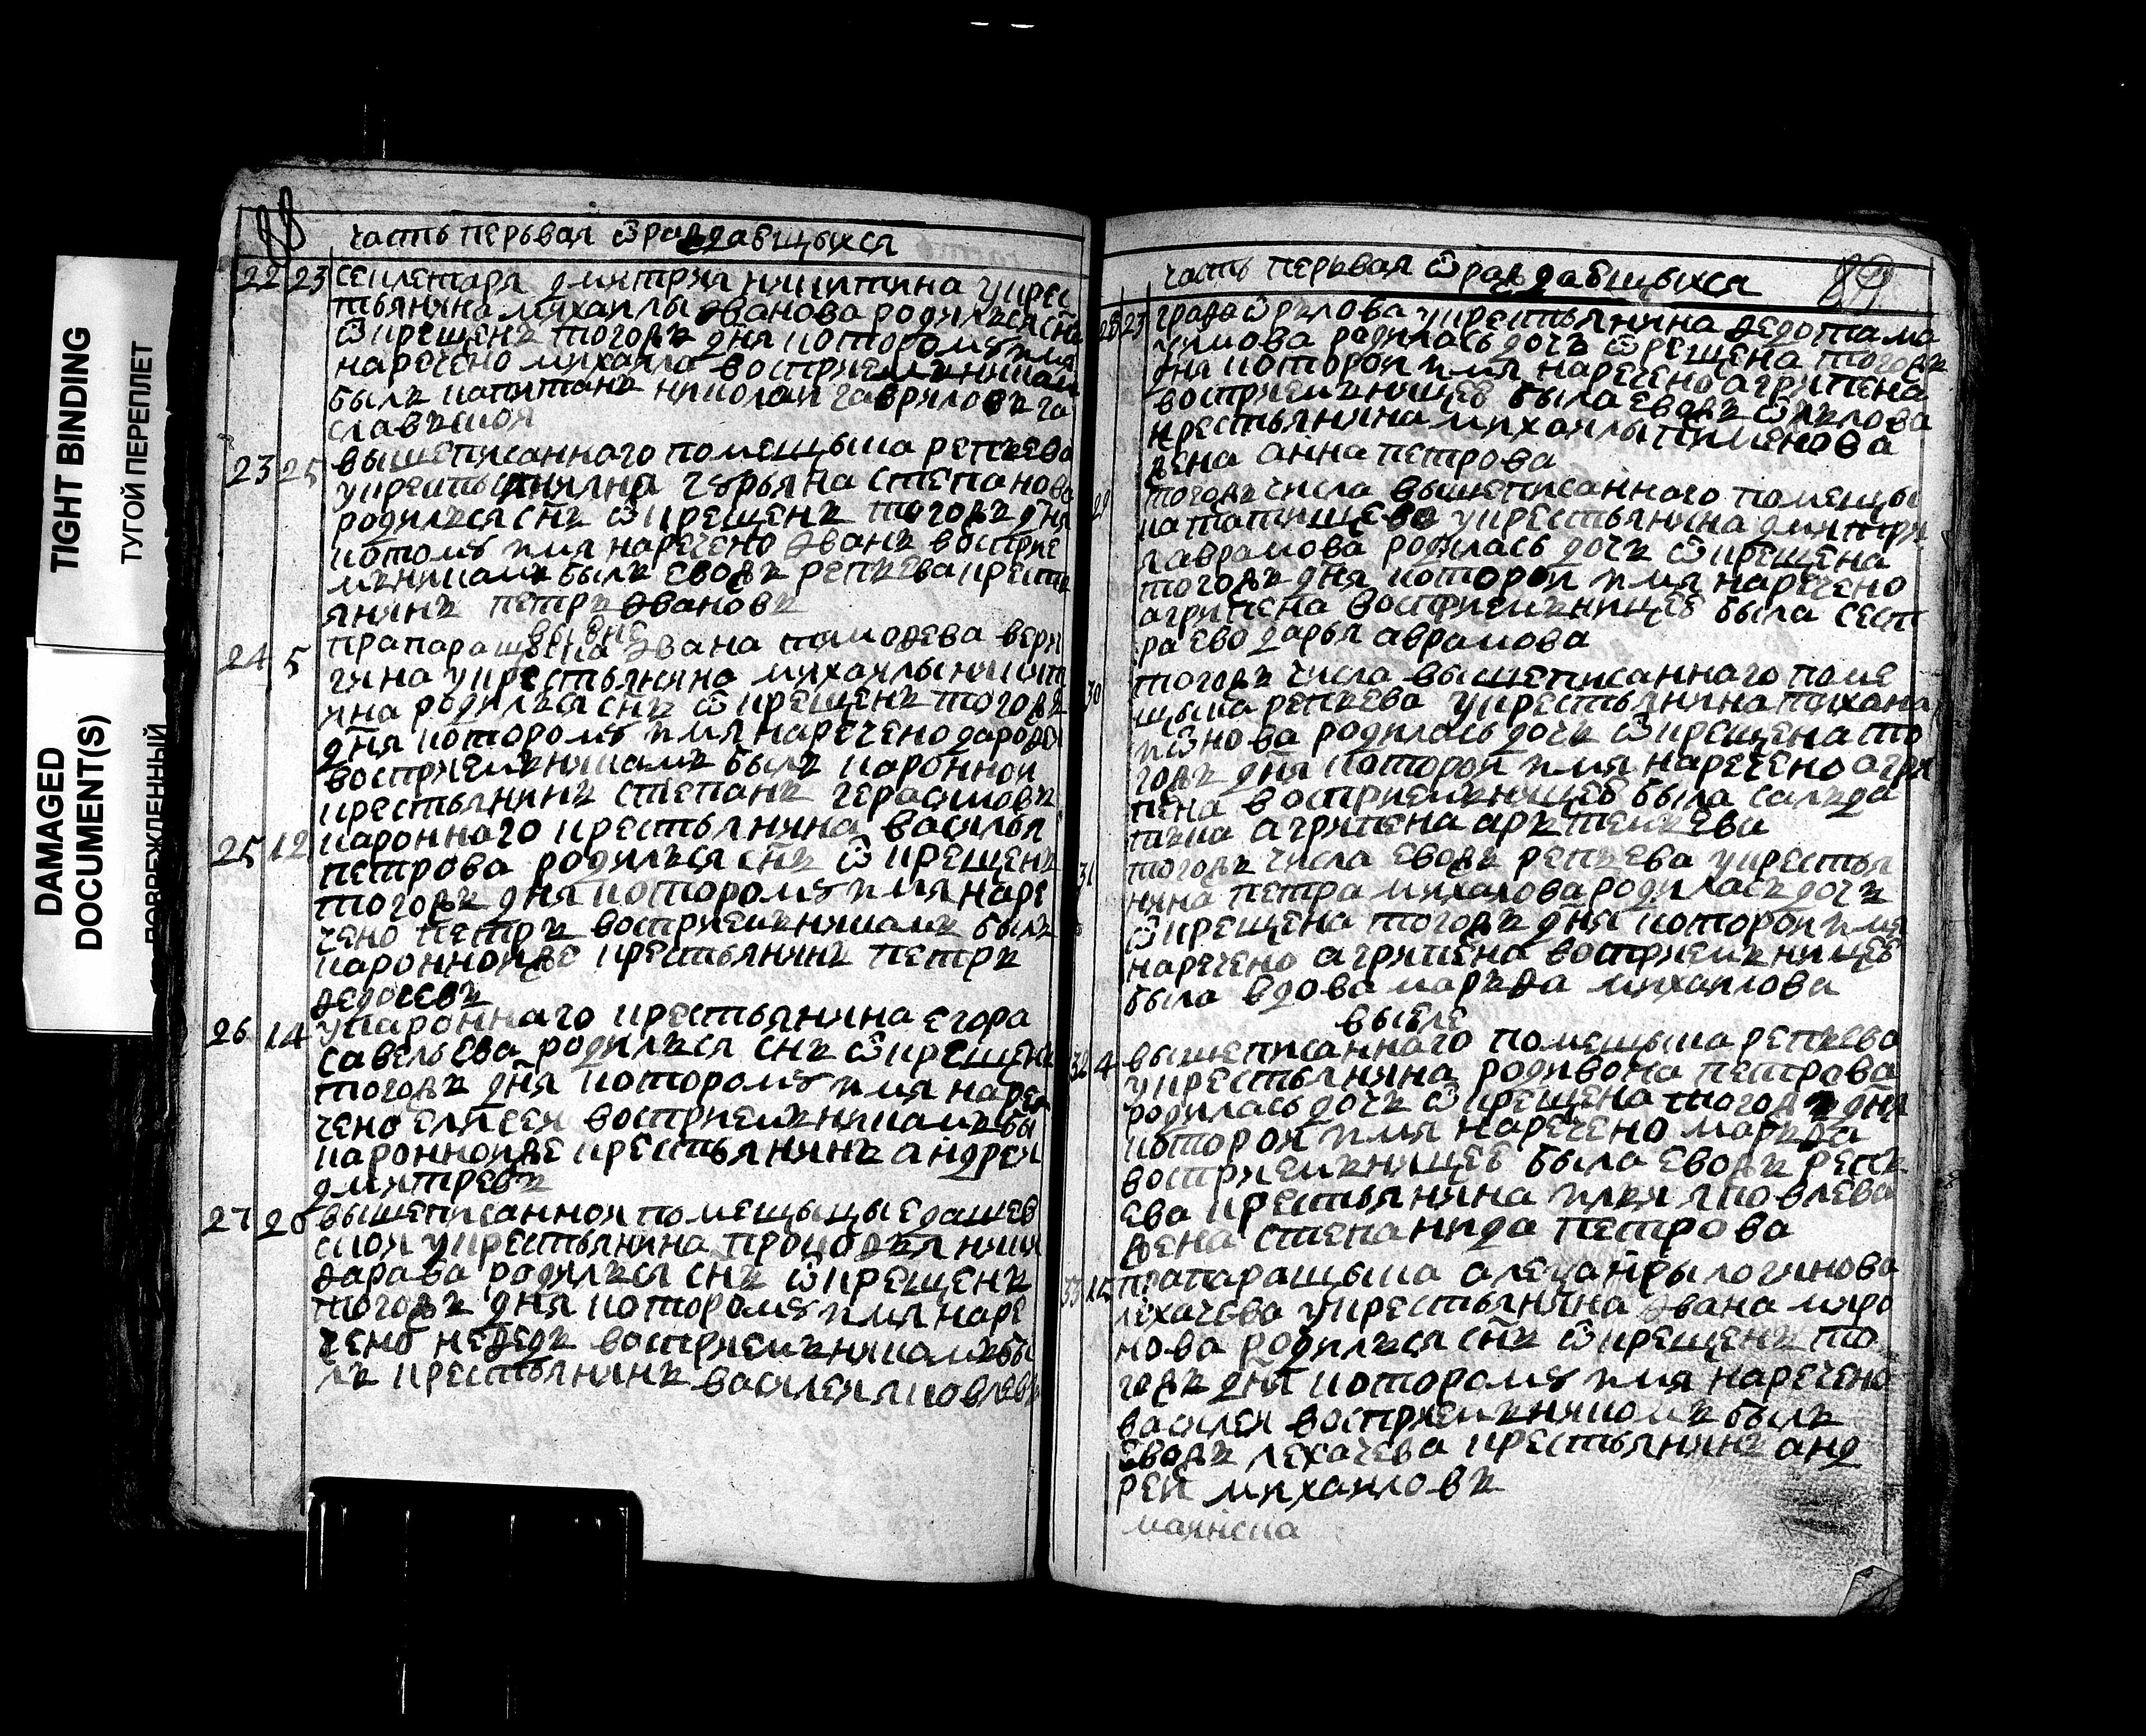 TIGHT BINDING
ТУГОЙ ПЕРЕПЛЕТ
DAMAGED
DOCUMENT(S)
ПОВРЕЖДЕННЫЙ
88
часть перьвая ѿ раждавщыхся
22 23 секлетаря дмитрия никитина укрес
тьянина михаилы ѳванова родилъся снъ
ѿ крещенъ тогожъ дня котарому имя
наречено михаила восприемъникам
былъ капитанъ николаи гаврило́въ га
славъскои
23 25 вышеписаннаго помещыка репъева
укрестьянина гурьяна степанова
родилъся снъ ѿ крещенъ тогожъ дня
котому имя наречено ѳванъ восприе
мъникамъ былъ евожъ репъева крестъ
янинъ петръ ѳвановъ
24 5 прапаращыка ѳвана тимоѳева
гина укрестьянина михаилы никит
ина родилъся снъ ѿ крещенъ тогожъ
дня котарому имя наречено дароѳеи
восприемъникамъ былъ каронной
крестьянинъ степанъ герасимовъ
25 12 кароннаго крестьянина василья
петрова родилъся снъ ѿ крещенъ
тогожъ дня котарому имя наре
чено петръ восприемъникамъ былъ
кароннойже крестьянинъ петръ
ѳедосевъ
26 14 укароннаго крестьянина егора
савельева родилъся снъ ѿ крещенъ
тогожъ дня котарому имя наре
чено елисеи восприемъникамъ бы
каронноиже крестьянинъ андреи
дмитревъ
27 26 вышеписаннои помещыцы едашев
скои укрестьянина
родилъся снъ ѿ крещенъ
тогожъ дня котарому имя наре
чено неѳедъ восприемъникамъ бы
лъ крестьянинъ василеи яковлевъ
часть перьвая ѿ раждавщыхся 89
28 27 графа ѿрълова укрестьянина ѳедота ма
родилась дочъ ѿ крещена тогожъ
дня которои имя наречено агрипена
восприемъницеѣ была евожъ ѿрълова
крестьянина михаилы пименова
жена анна петрова
29 тогожъ числа вышеписаннаго помещы
ка татищева укрестьянина дмитри
я аврамова родилась дочъ ѿ крещена
тогожъ дня которои имя наречено
агрипена восприемъницеѣ была сест
ра ево дарья аврамова
30 тогожъ числа вышеписаннаго поме
щыка репъева укрестьянина тихана
родилась дочъ ѿ крещена то
гожъ дня которои имя наречено агри
пена восприемъницеѣ была салъда
тъка агрипена
31 тогожъ числа евожъ репъева укрестья
нина петра михаилова родилась дочъ
ѿ крещена тогожъ дня которои имя
наречено агрипена восприемъницеѣ
была вдова маръѳа михаилова
32 4 вышеписаннаго помещыка репъева
укрестьянина родивона петрова
родилась дочъ ѿ крещена тогожъ дня
которои имя наречено маръѳа
восприемъницеѣ была евожъ репъ
ева крестьянина илъи яковлева
жена степанида петрова
33 прапаращыка логинова
лехачева укрестьянина ѳвана миро
нова родилъся снъ ѿ крещенъ то
гожъ дня котарому имя наречено
василеи восприемъникомъ былъ
евожъ лехачева крестьянинъ анд
реи михаиловъ